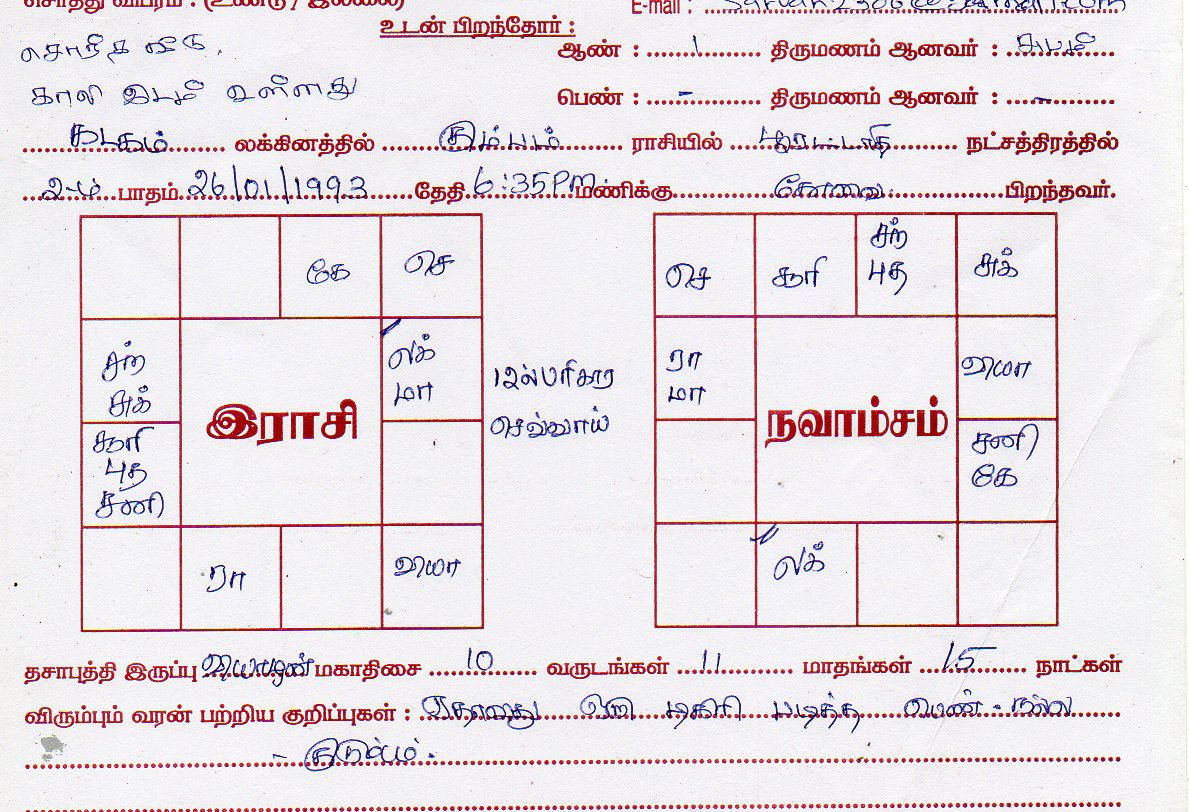 சொத்து விபரம் : (உண்டு / இல்லை) E-mail :
உடன் பிறந்தோர் :
சொந்த வீடு, ஆண் : 1 திருமணம் ஆனவர் :
காலி இடம் உள்ளது பெண் : - திருமணம் ஆனவர் : -
கடகம் லக்கினத்தில் கும்பம் ராசியில் பூரட்டாதி நட்சத்திரத்தில்
2-ம் பாதம் 26/01/1993 தேதி 6:35PM மணிக்கு கோவை பிறந்தவர்.
கே செ
சந் சுக்
லக் மா
சூரி புத சனி
இராசி
ரா வியா
12ல் பரிகார
செவ்வாய்
செ சூரி சந் புத சுக்
ரா மா
வியா
சனி கே
நவாம்சம்
லக்
தசாபுத்தி இருப்பு வியாழன் மகாதிசை 10 வருடங்கள் 11 மாதங்கள் 15 நாட்கள்
விரும்பும் வரன் பற்றிய குறிப்புகள் : ஏதாவது ஒரு டிகிரி படித்த பெண் - நல்ல
- குடும்பம்.